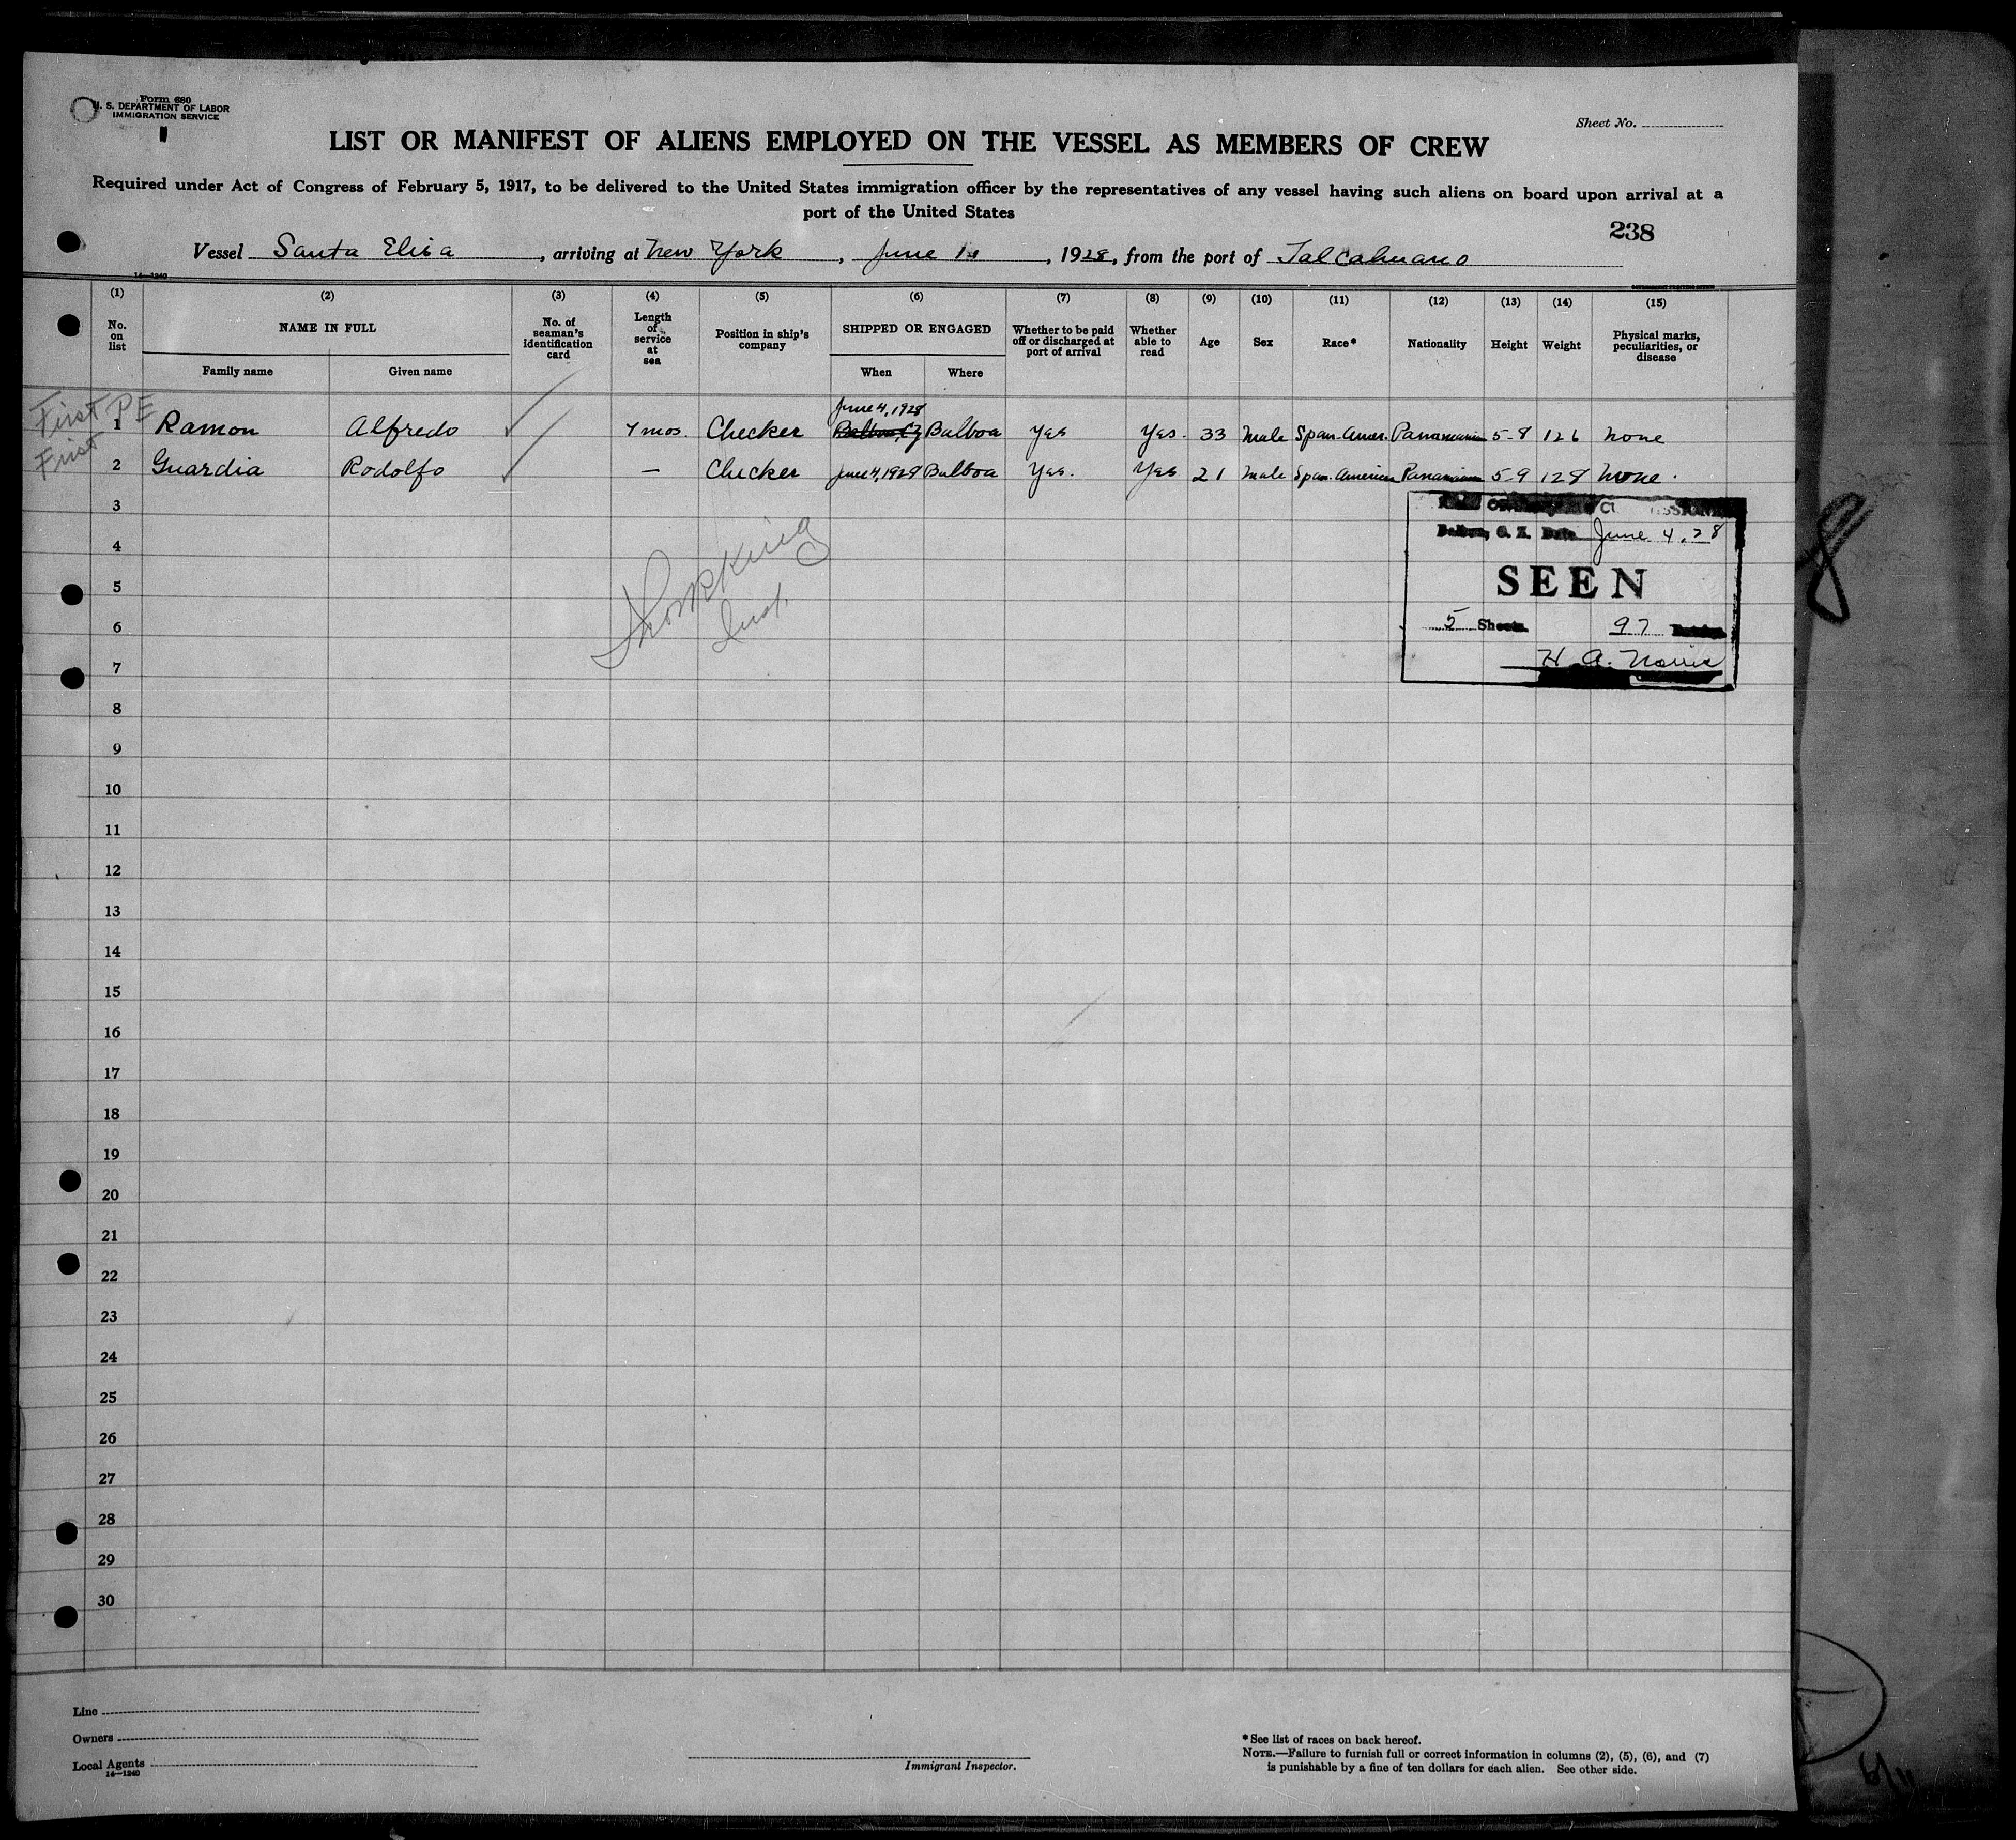 Form 680
U. S. DEPARTMENT OF LABOR
IMMIGRATION SERVICE
Sheet No.
LIST OR MANIFEST OF ALIENS EMPLOYED ON THE VESSEL AS MEMBERS OF CREW
Required under Act of Congress of February 5, 1917, to be delivered to the United States immigration officer by the representatives of any vessel having such aliens on board upon arrival at a
port of the United States
238
Vessel Santa Elisa, arriving at New York, June 11, 1928, from the port of Talcahuano
14—1240
(1) (2) (3) (4) (5) (6) (7) (8) (9) (10) (11) (12) (13) (14) (15)
No. on list NAME IN FULL No. of seaman's identification card Length of service at sea Position in ship's company SHIPPED OR ENGAGED Whether to be paid off or discharged at port of arrival Whether able to read Age Sex Race* Nationality Height Weight Physical marks, peculiarities, or disease
Family name Given name When Where
First PE
June 4, 1928
1 Ramon Alfredo 7 mos. Checker Balboa, CZ Balboa Yes Yes. 33 Male Span-Amer. Panamanian 5-8 126 None
First
2 Guardia Rodolfo — Checker June 4, 1928 Balboa Yes. Yes 21 Male Span-American Panamanian 5-9 128 None.
3
Balboa, C. Z. Date June 4, 28
4
SEEN
5
5 Sheets 97
6
H. A. Norris
7
Thompkins
Insp.
8
9
10
11
12
13
14
15
16
17
18
19
20
21
22
23
24
25
26
27
28
29
30
Line
Owners
Local Agents
14—1240
Immigrant Inspector.
*See list of races on back hereof.
NOTE.—Failure to furnish full or correct information in columns (2), (5), (6), and (7)
is punishable by a fine of ten dollars for each alien. See other side.